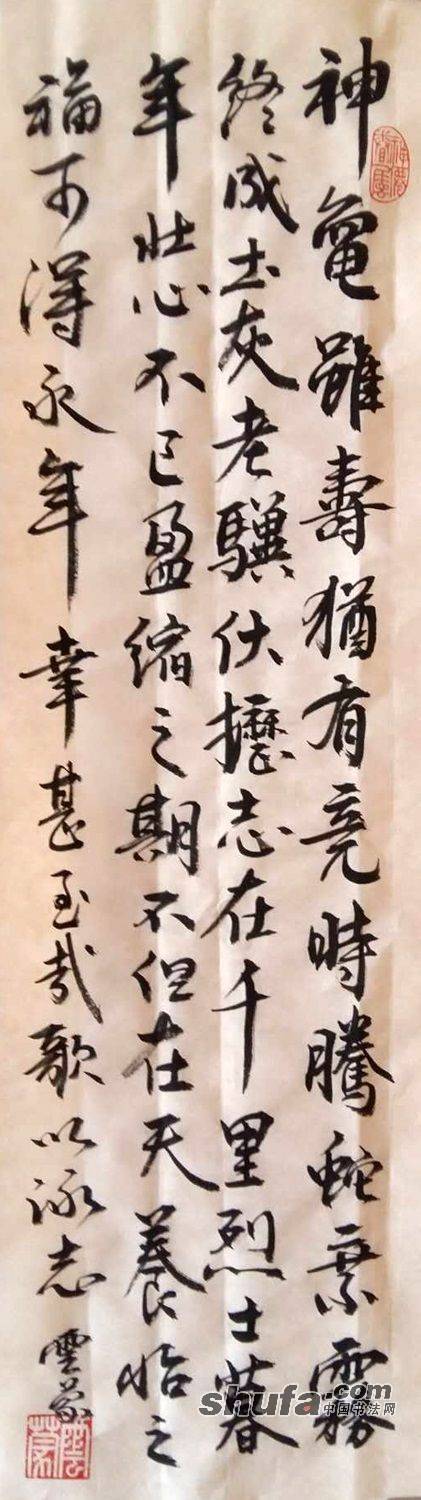 神龜雖壽猶有竟時騰蛇乘霧
終成土灰老驥伏櫪志在千里烈士暮
年壮心不已盈縮之期不但在天養怡之
福可得永年幸甚至哉歌以詠志 雲蒙
shufa.com
中国书法网